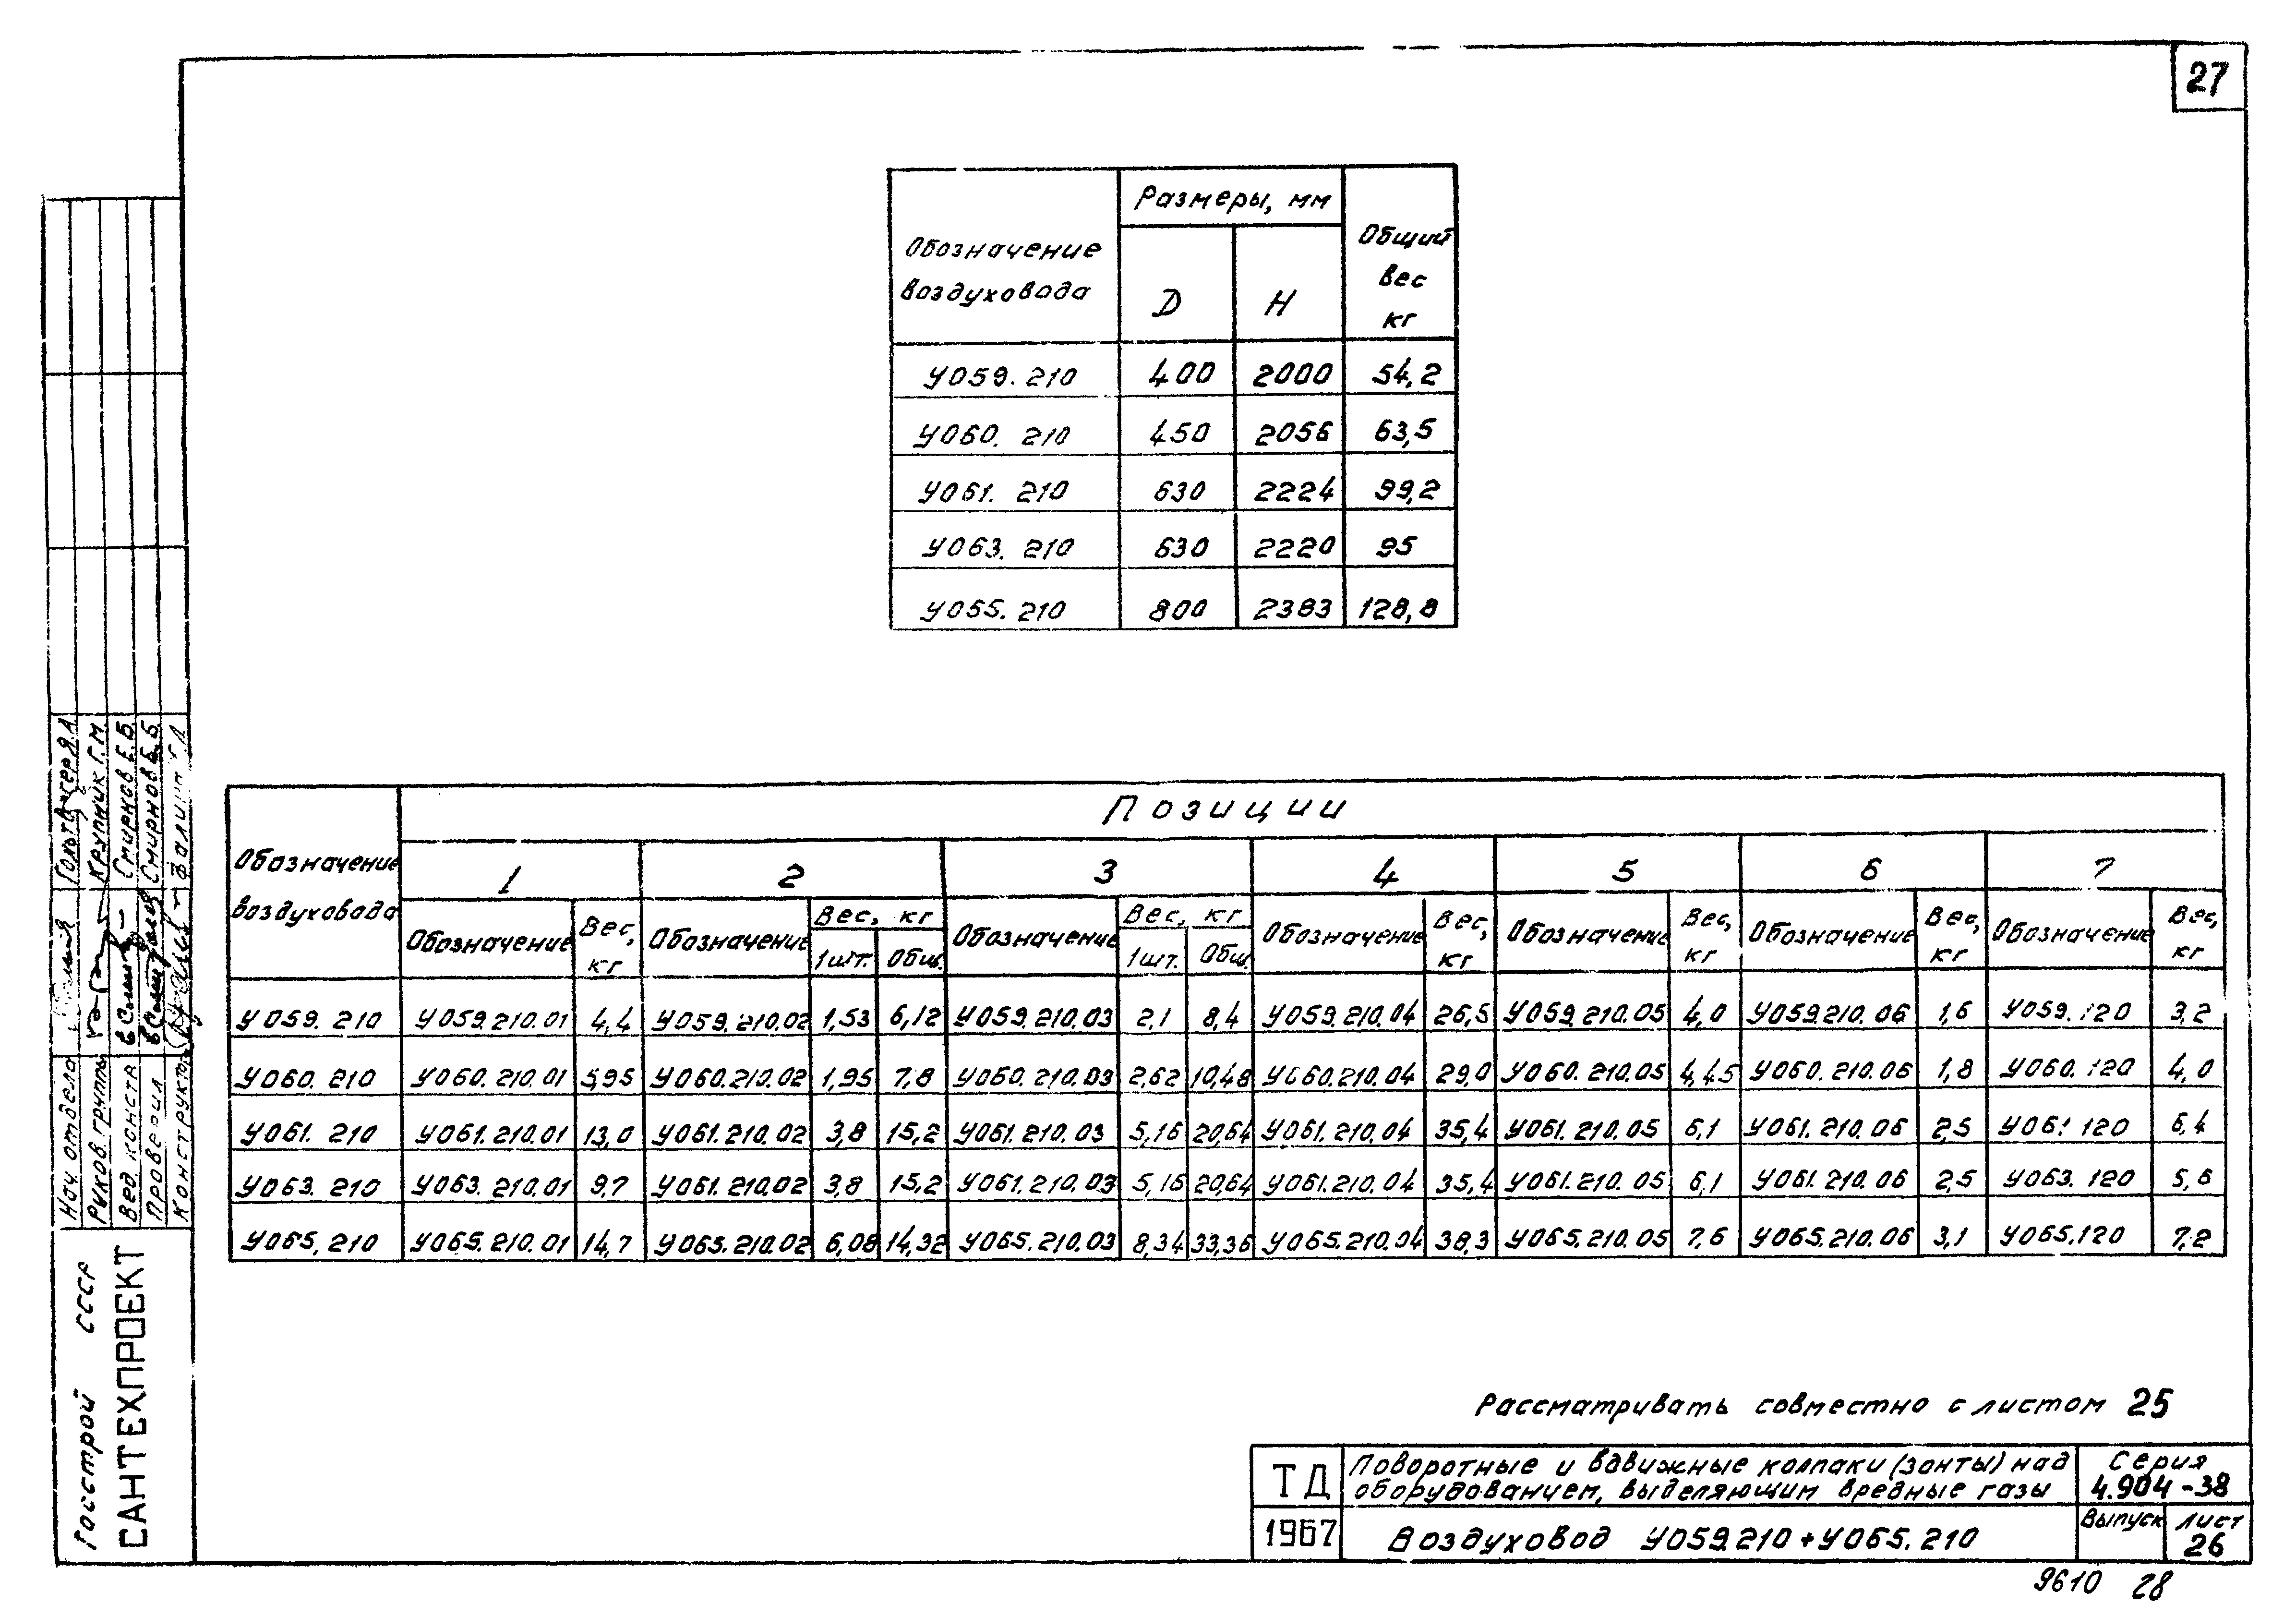 27
Обозначение воздуховода | Размеры, мм | Общий вес кг
D | H
У059.210 | 400 | 2000 | 54,2
У060.210 | 450 | 2056 | 63,5
У061.210 | 630 | 2224 | 99,2
У063.210 | 630 | 2220 | 95
У065.210 | 800 | 2383 | 128,8
Обозначение воздуховода | Позиции
1 | 2 | 3 | 4 | 5 | 6 | 7
Обозначение | Вес, кг | Обозначение | Вес, кг | Обозначение | Вес, кг | Обозначение | Вес, кг | Обозначение | Вес, кг | Обозначение | Вес, кг | Обозначение | Вес, кг
1шт. | Общ. | 1шт. | Общ.
У059.210 | У059.210.01 | 4,4 | У059.210.02 | 1,53 | 6,12 | У059.210.03 | 2,1 | 8,4 | У059.210.04 | 26,5 | У059.210.05 | 4,0 | У059.210.06 | 1,6 | У059.120 | 3,2
У060.210 | У060.210.01 | 5,95 | У060.210.02 | 1,95 | 7,8 | У060.210.03 | 2,62 | 10,48 | У060.210.04 | 29,0 | У060.210.05 | 4,45 | У060.210.06 | 1,8 | У060.120 | 4,0
У061.210 | У061.210.01 | 13,0 | У061.210.02 | 3,8 | 15,2 | У061.210.03 | 5,16 | 20,64 | У061.210.04 | 35,4 | У061.210.05 | 6,1 | У061.210.06 | 2,5 | У061.120 | 6,4
У063.210 | У063.210.01 | 9,7 | У061.210.02 | 3,8 | 15,2 | У061.210.03 | 5,16 | 20,64 | У061.210.04 | 35,4 | У061.210.05 | 6,1 | У061.210.06 | 2,5 | У063.120 | 5,6
У065.210 | У065.210.01 | 14,7 | У065.210.02 | 6,08 | 14,32 | У065.210.03 | 8,34 | 33,36 | У065.210.04 | 38,3 | У065.210.05 | 7,6 | У065.210.06 | 3,1 | У065.120 | 7,2
Рассматривать совместно с листом 25
ТД | Поворотные и вдвижные колпаки (зонты) над оборудованием, выделяющим вредные газы | Серия 4.904-38
1967 | Воздуховод У059.210÷У065.210 | Выпуск | Лист 26
9610 28
Госстрой СССР
САНТЕХПРОЕКТ
Нач. отдела
Руков. группы Крупник Г.М.
Вед. констр. Смирнов Е.Б.
Проверил Смирнов Е.Б.
Конструктор